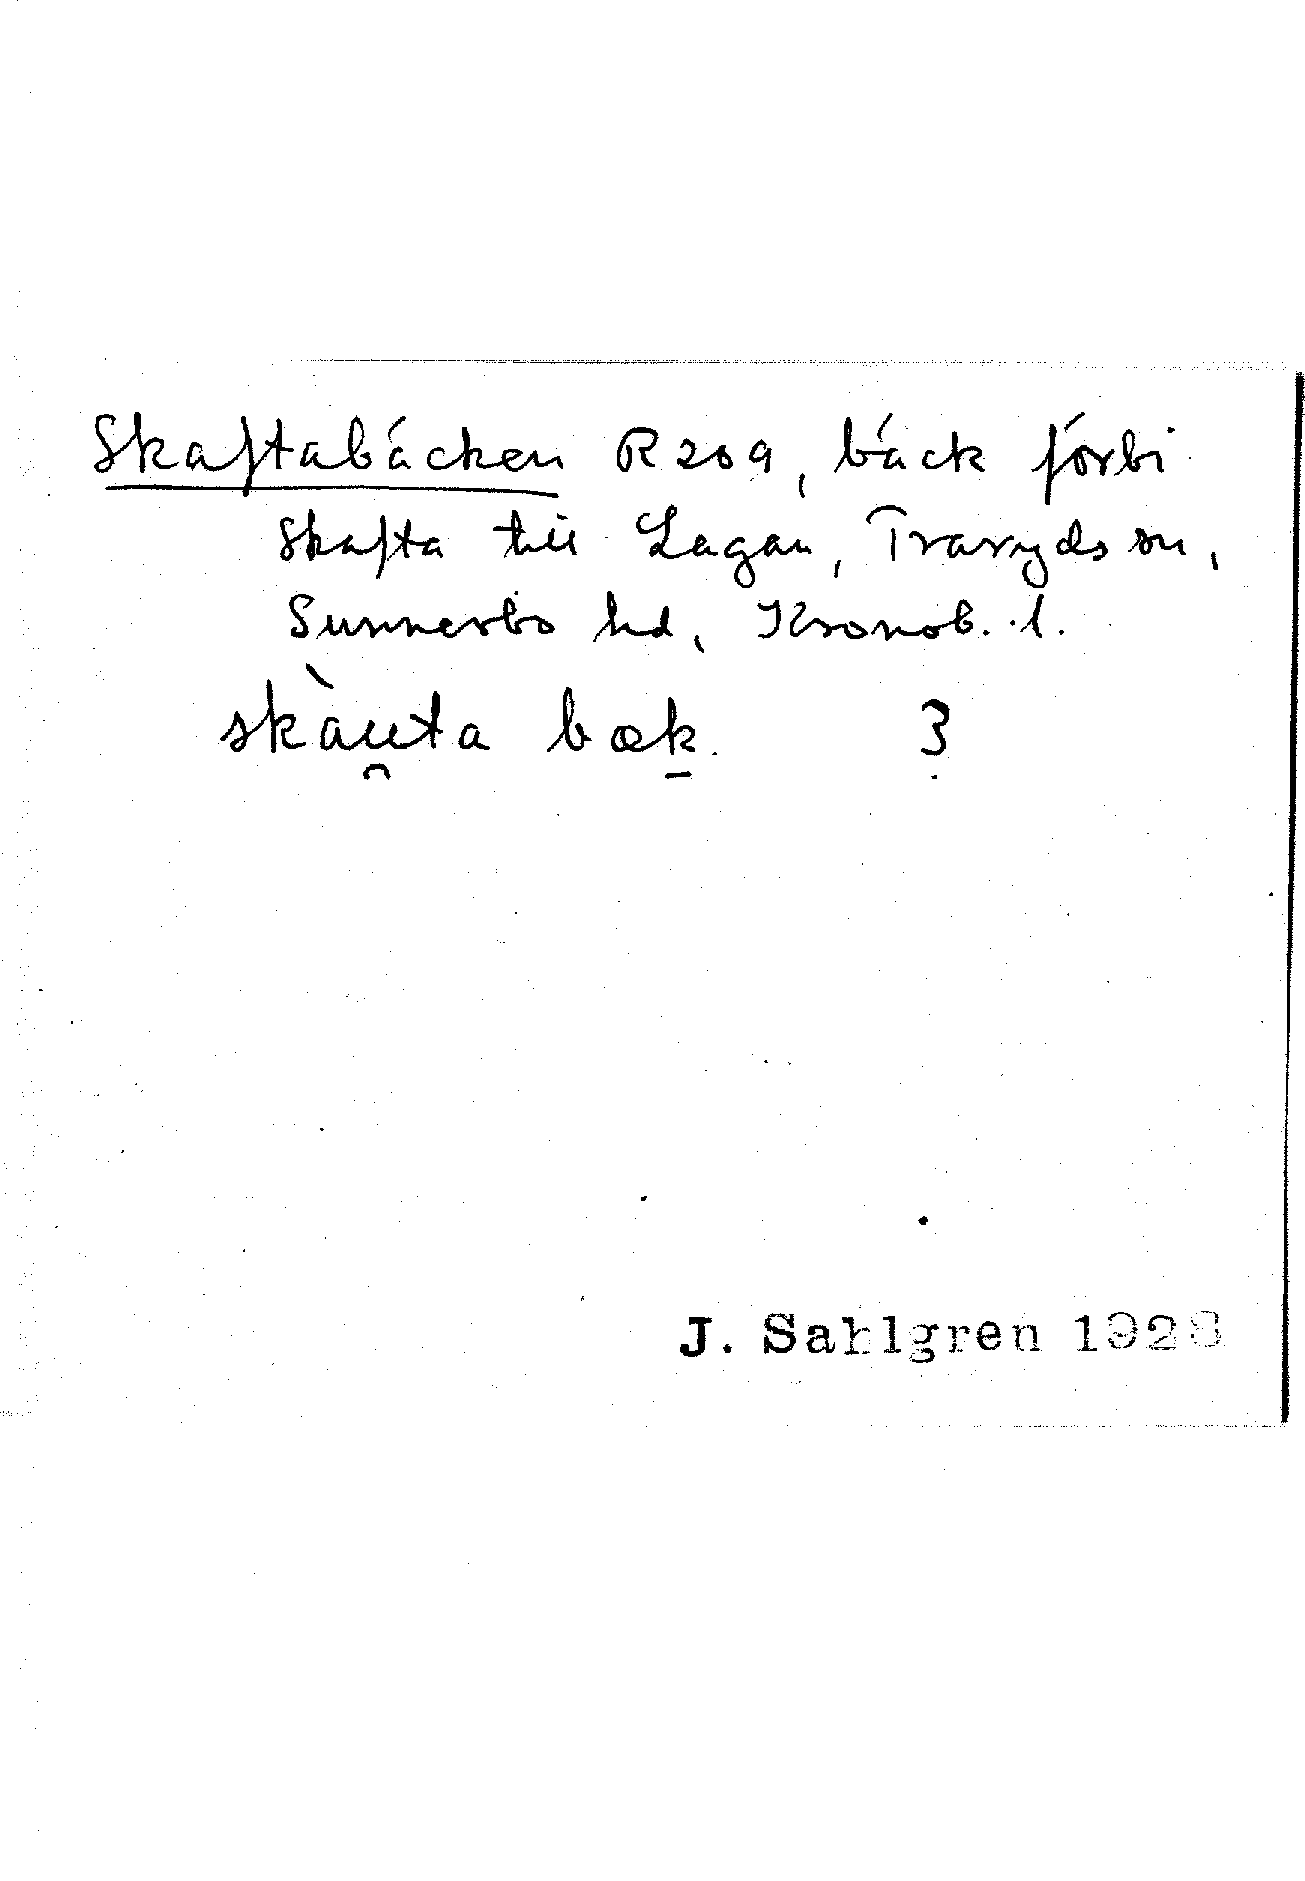 Skaftabäcken R209, bäck förbi
Skafta till Lagan, Traryds sn,
Sunnerbo hd, Kronob. l.
skàu̯ta bæk̲ 3
J. Sahlgren 1928